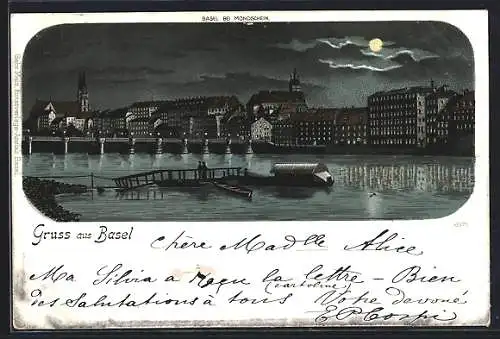 BASEL BEI MONDSCHEIN.
Gruss aus Basel
chère Madlle Alice
Ma Silvia a reçu la lettre – Bien
(cartoline)
des Salutations à tous Votre devoué